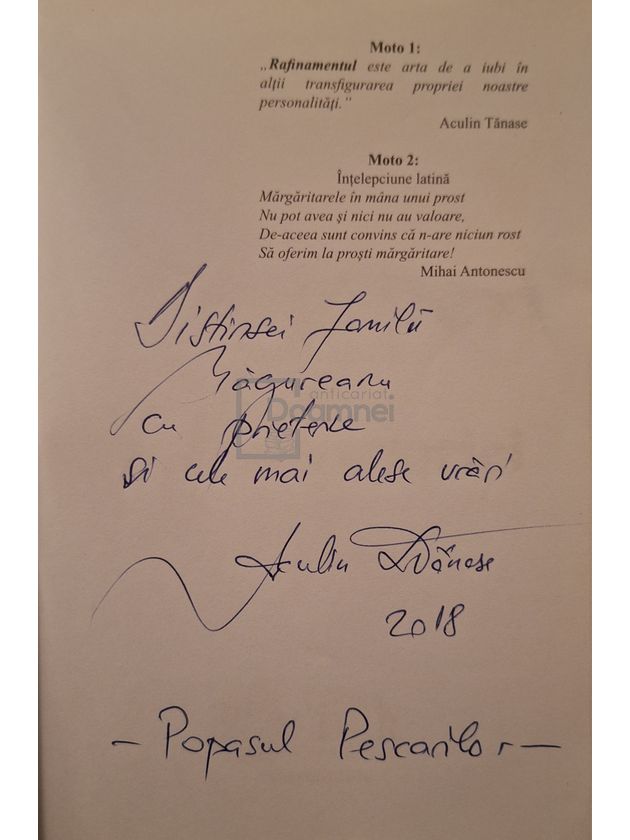 Moto 1:
„Rafinamentul este arta de a iubi în
alții transfigurarea propriei noastre
personalități.”
Aculin Tănase
Moto 2:
Înțelepciune latină
Mărgăritarele în mâna unui prost
Nu pot avea și nici nu au valoare,
De-aceea sunt convins că n-are niciun rost
Să oferim la proști mărgăritare!
Mihai Antonescu
Distinsei familii
Măgureanu
anticariat
Doamnei
cu prietenie
și cele mai alese urări
Aculin Tănase
2018
- Popasul Pescarilor -